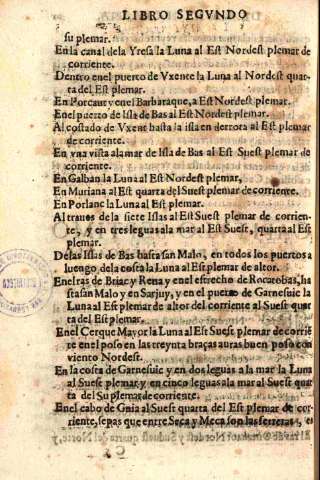 LIBRO SEGVNDO
su plemar.
En la canal dela Yresa la Luna al Est Nordest plemar de
corriente.
Dentro enel puerto de Vxente la Luna al Nordest quar
ta del Est plemar.
En Porcaut y enel Barbaraque, a Est Nordest plemar.
En el puerto de Isla de Bas al Est Nordest plemar.
Al costado de Vxent hasta la isla en derrota al Est plemar
de corriente.
En vna vista alamar de Isla de Bas al Est Suest plemar de
corriente.
En Galban la Luna al Est Nordest plemar,
En Muriana al Est quarta del Suest plemar de corriente.
En Porlanc la Luna al Est plemar.
Al traues de la siete Islas al Est Suest plemar de corrien-
te, y en tres leguas ala mar al Est Suest, quarta al Est
plemar.
Delas Islas de Bas hasta san Malo, en todos los puertos a
luengo dela costa la Luna al Est plemar de altor.
Enel ras de Briac y Rena y en el estrecho de Rocatobas, ha
sta san Malo y en Sarjuy, y en el puerto de Garnesuic la
Luna al Est plemar de altor del corriente al Suest quar
ta del Est plemar.
En el Cerque Mayor la Luna al Est Suest plemar de corriē
te en el poso en las treynta braças auras buen poso con
viento Nordest.
En la costa de Garnesuic y en dos leguas a la mar la Luna
al Suest plemar y en cinco leguas ala mar al Suest quar
ta del Su plemar de corriente.
En el cabo de Gnia al Suest quarta del Est plemar de cor
riente, sepas que entre Seca y Meca son las ferreras, et